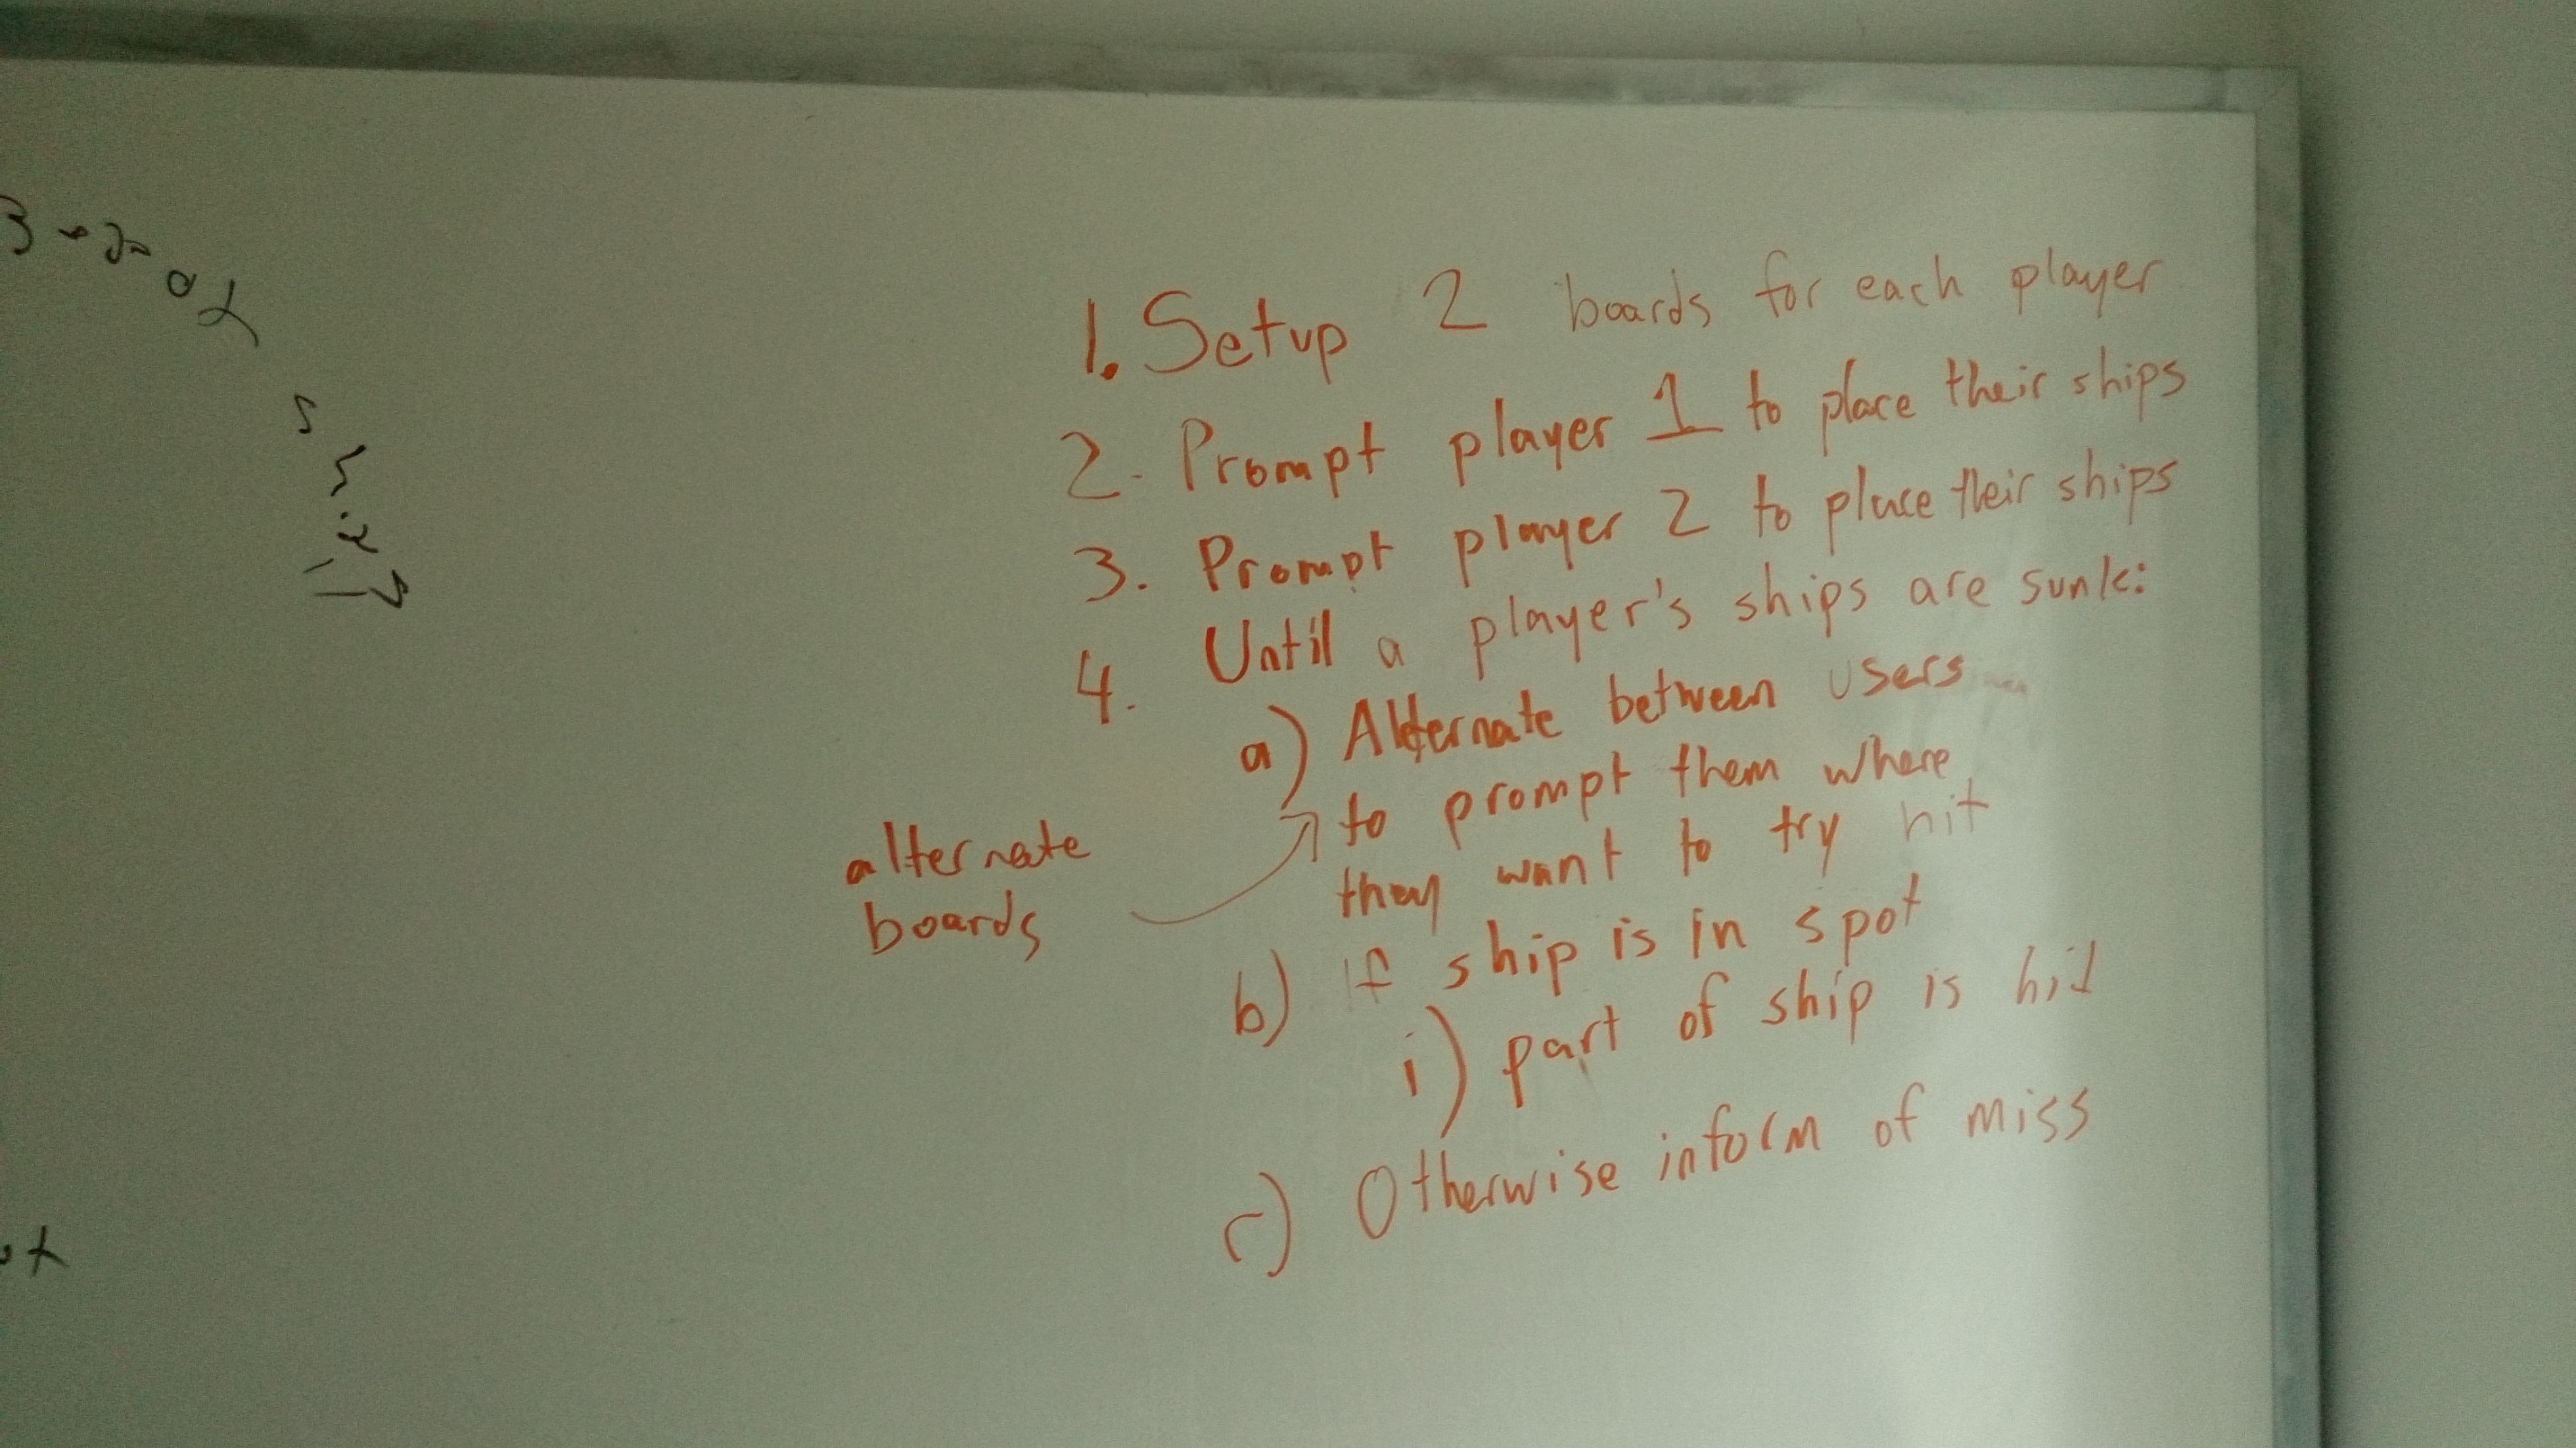 1. Setup 2 boards for each player
2. Prompt player 1 to place their ships
3. Prompt player 2 to place their ships
4. Until a player's ships are sunk:
a) Alternate between users
to prompt them where
they want to try hit
alternate
boards
b) If ship is in spot
i) part of ship is hit
c) Otherwise inform of miss